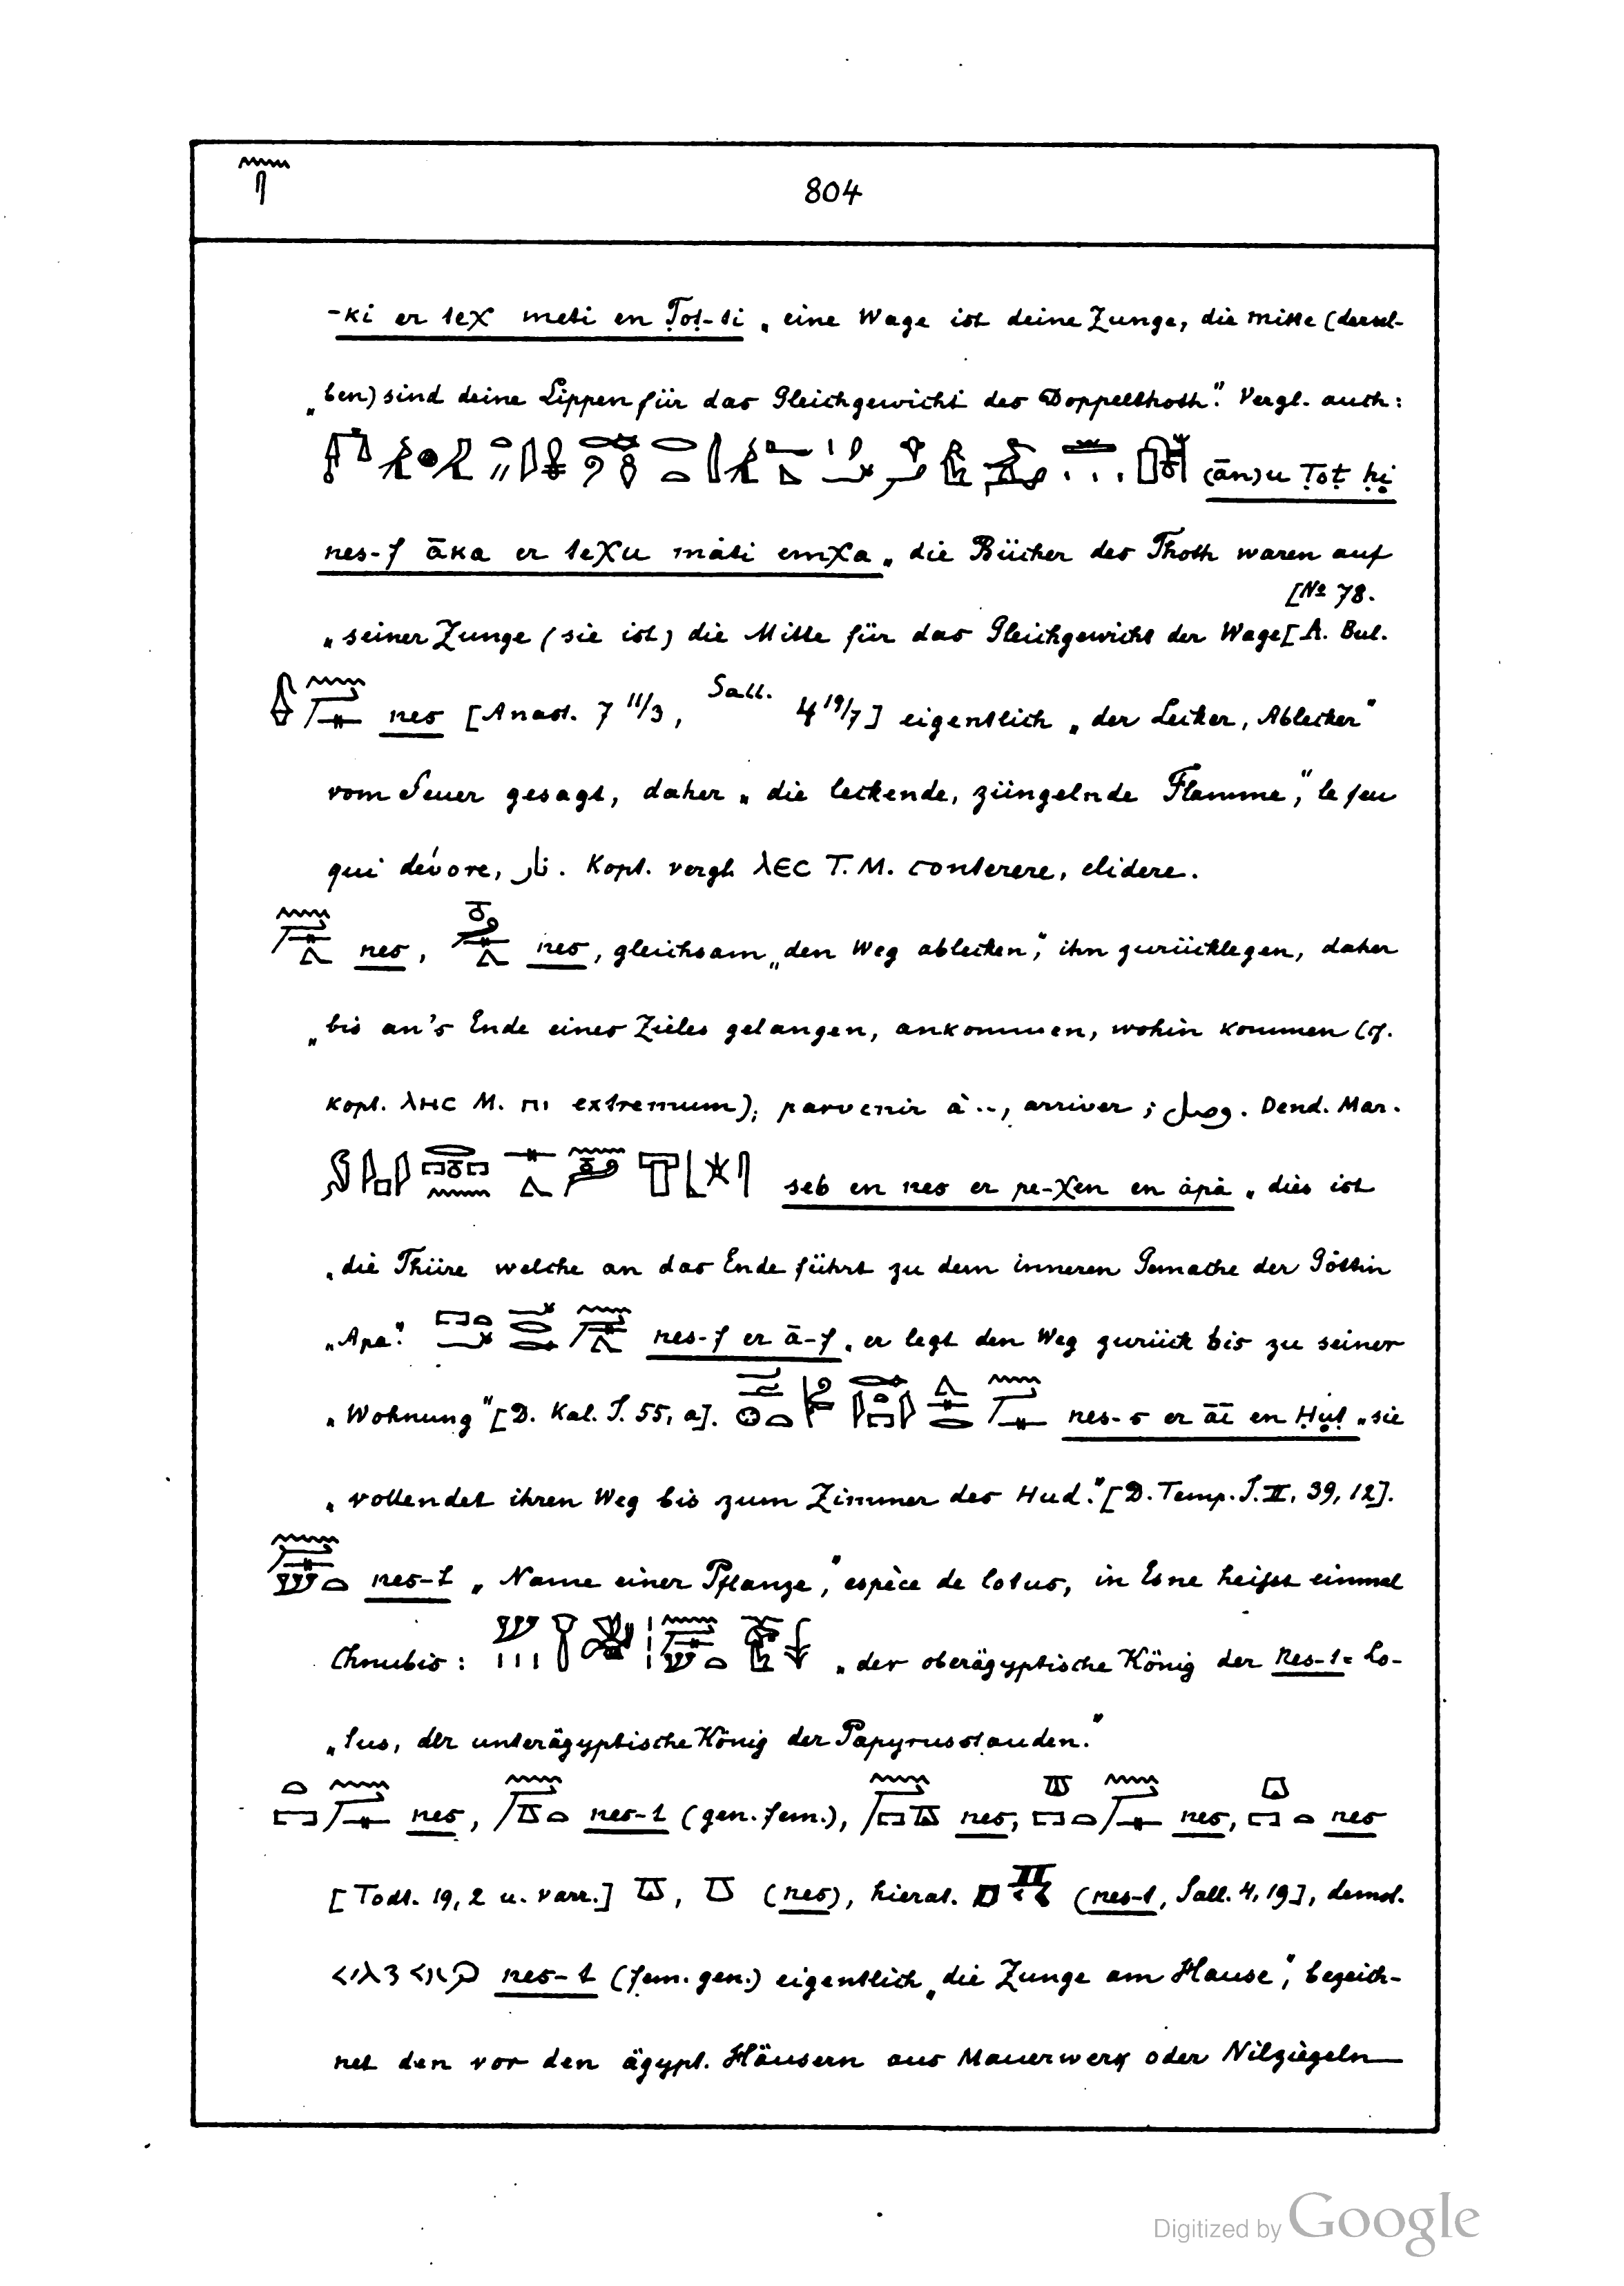 804
-ki er teχ meti en Ṭoṭ-ti „eine Wage ist deine Zunge, die Mitte (dersel-
„ben) sind deine Lippen für das Gleichgewicht des Doppelthoth." Vergl. auch:
(ān)u Ṭoṭ ḥi
nes-f āka er teχu māti emχa „die Bücher des Thoth waren auf
[No 78.
„seiner Zunge (sie ist) die Mitte für das Gleichgewicht der Wage [A. Bul.
nes [Anast. 7 11/3, Sall. 4 19/7] eigentlich „der Lecker, Ablecker"
vom Feuer gesagt, daher „die leckende, züngelnde Flamme," le feu
qui dévore, نار. Kopt. vergl. λεc T. M. conterere, elidere.
nes, nes, gleichsam „den Weg ablecken," ihn zurücklegen, daher
„bis an's Ende eines Zieles gelangen, ankommen, wohin kommen (cf.
kopt. λнc M. пı extremum), parvenir à .., arriver; وصل. Dend. Mar.
seb en nes er pe-χen en àpà „dies ist
„die Thüre welche an das Ende führt zu dem inneren Gemache der Göttin
„Apa." nes-f er ā-f „er legt den Weg zurück bis zu seiner
„Wohnung" [D. Kal. I. 55, a]. nes-s er āī en Ḥuṭ „sie
„vollendet ihren Weg bis zum Zimmer des Hud." [D. Temp. I. II, 39, 12].
nes-t „Name einer Pflanze," espèce de lotus, in Esne heisst einmal
Chnubis: „der oberägyptische König der nes-t= Lo-
„tus, der unterägyptische König der Papyrusstauden."
nes, nes-t (gen. fem.), nes, nes, nes
[Todt. 19, 2 u. varr.] , (nes), hierat. (nes-t, Sall. 4, 19], demot.
nes-t (fem. gen.) eigentlich „die Zunge am Hause", bezeich-
net den vor den ägypt. Häusern aus Mauerwerk oder Nilziegeln
Digitized by Google